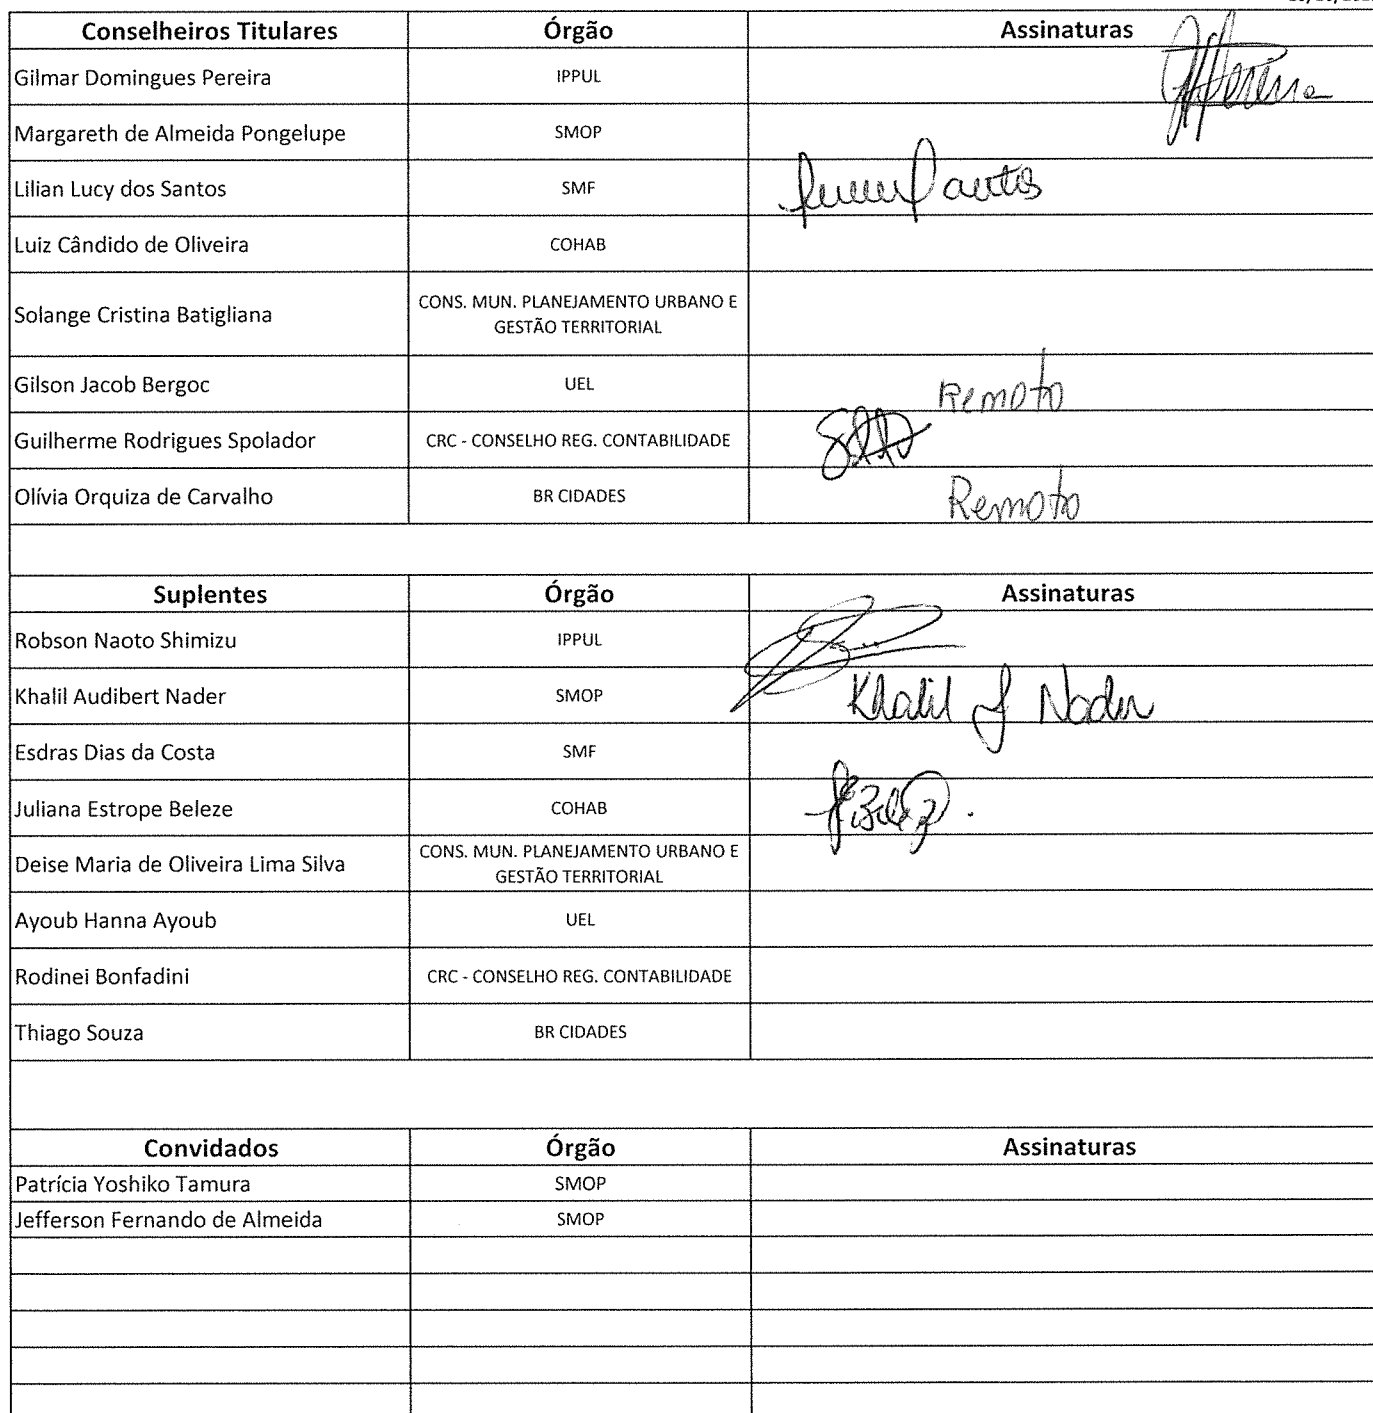 Conselheiros Titulares Órgão Assinaturas
Gilmar Domingues Pereira IPPUL
Margareth de Almeida Pongelupe SMOP
Lilian Lucy dos Santos SMF Santos
Luiz Cândido de Oliveira COHAB
Solange Cristina Batigliana CONS. MUN. PLANEJAMENTO URBANO E
GESTÃO TERRITORIAL
Gilson Jacob Bergoc UEL Remoto
Guilherme Rodrigues Spolador CRC - CONSELHO REG. CONTABILIDADE
Olívia Orquiza de Carvalho BR CIDADES Remoto
Suplentes Órgão Assinaturas
Robson Naoto Shimizu IPPUL
Khalil Audibert Nader SMOP Khalil J Nader
Esdras Dias da Costa SMF
Juliana Estrope Beleze COHAB
Deise Maria de Oliveira Lima Silva CONS. MUN. PLANEJAMENTO URBANO E
GESTÃO TERRITORIAL
Ayoub Hanna Ayoub UEL
Rodinei Bonfadini CRC - CONSELHO REG. CONTABILIDADE
Thiago Souza BR CIDADES
Convidados Órgão Assinaturas
Patrícia Yoshiko Tamura SMOP
Jefferson Fernando de Almeida SMOP